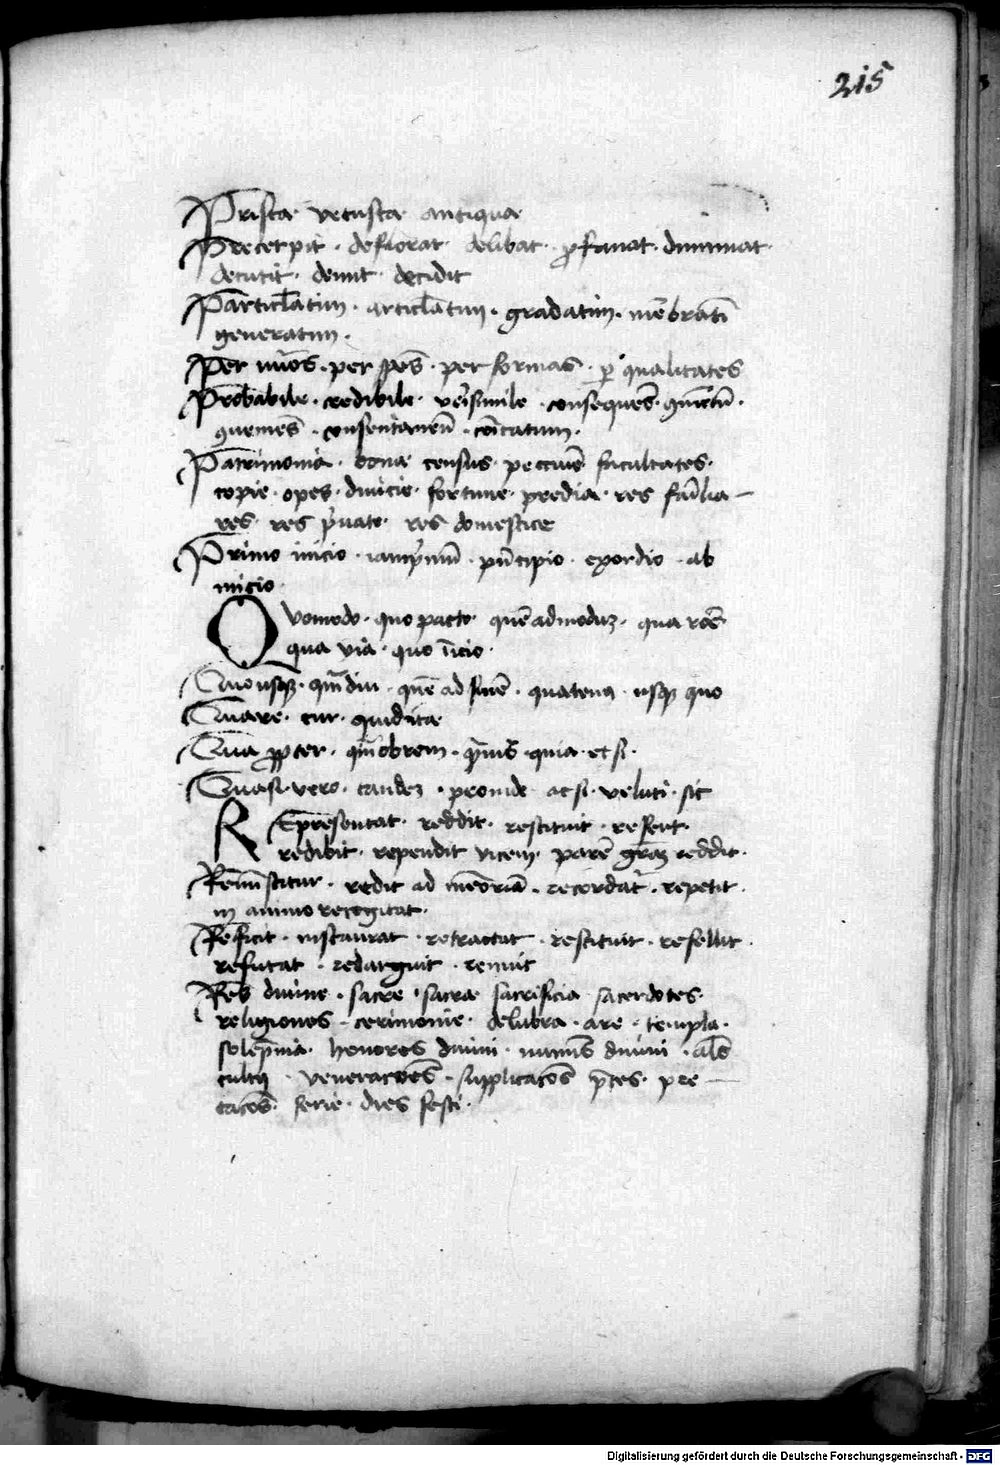 215
Prisca vetusta antiqua
Precerpit · deflorat · delibat · ꝓfanat · diminuat ·
decutit · demit · decidit
Particl̄atim · articl̄atim · gradatim · mēbratī
generatim ·
Per · per spēs · per formas · ꝑ qualitates
Probabile · credibile · verisimile · consequēs ·
consentaneū ·
Patrimonia · bona census · facultates ·
copie · opes · diuicie · fortune · predia · res familia—
res · res pͥuate · res domestice
Primo inicio · pͥncipio · exordio · ab
inicio ·
Quomodo · quo pacto · quēadmoduʒ · qua roē
qua via · quo
Quousqʒ · qm̄diu · quē ad finē · quatenꝰ · usqʒ quo
Quare · cur · quid ita
Qua ꝓpter · qm̄obrem · quia · et si ·
Quasi · vero · tandeʒ · proinde · ac si · veluti · sic
REpresentat · reddit · restituit · refert ·
redibit · rependit vicem · parē gr̄aʒ reddit ·
Reminiscitur · redit ad meōriā · recordatᷣ · repetit ·
in animo recogitat ·
Reficit · instaurat · retractat · restituit · refellit ·
refutat · redarguit · renuit
Res diuine · sacre · sacra sacrificia sacerdotes ·
religiones · cerimonie · delubra · are · templa ·
solēpnia · honores diuini · diuini ·
cultꝰ · veneracoēs · supplicacōs p̄ces · pre—
cacōs · ferie · dies festi ·
Digitalisierung gefördert durch die Deutsche Forschungsgemeinschaft · DFG